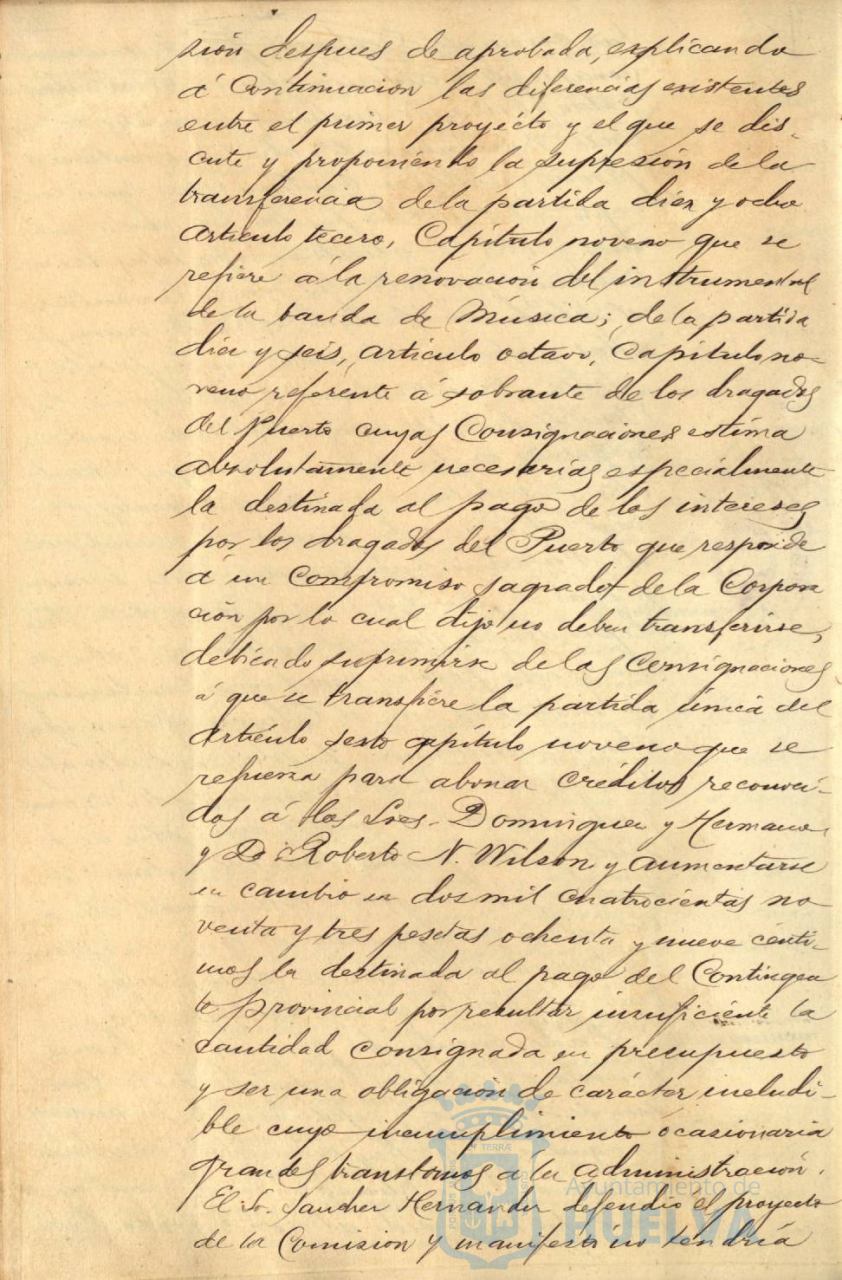 sión despues de aprobada, explicando
á continuacion las diferencias existentes
entre el primer proyécto y el que se dis-
cute y proponiendo la supresión de la
transferencia de la partida diez y ocho
artículo tecero, Capítulo noveno que se
refiere á la renovación del instrumental
de la banda de Música; de la partida
diez y seis, artículo octavo, Capítulo no-
veno referente á sobrante de los dragados
del Puerto cuyas Consignaciones estima
absolutamente necesarias especialmente
la destinada al pago de los intereses
por los dragados del Puerto que responde
á un Compromiso sagrado de la Corpora
ción por lo cual dijo no deben transferirse,
debiendo suprimirse de las Consignaciones
á que se transfiere la partida única del
artículo sesto capítulo noveno que se
refuerza para abonar créditos reconoci-
dos á los Sres. Dominguez y Hermano
y Dn Roberto N. Wilson y aumentarse
en cambio en dos mil cuatrocientas no-
venta y tres pesetas ochenta y nueve cénti-
mos la destinada al pago del Contingen
te provincial por resultar insuficiente la
cantidad consignada en presupuesto
y ser una obligación de carácter ineludi-
ble cuyo incumplimiento ocasionaria
grandes transtornos a la administración.
El Sr. Sanchez Hernandez defendio el proyecto
de la Comision y manifestó no tendría
Ayuntamiento de
HUELVA